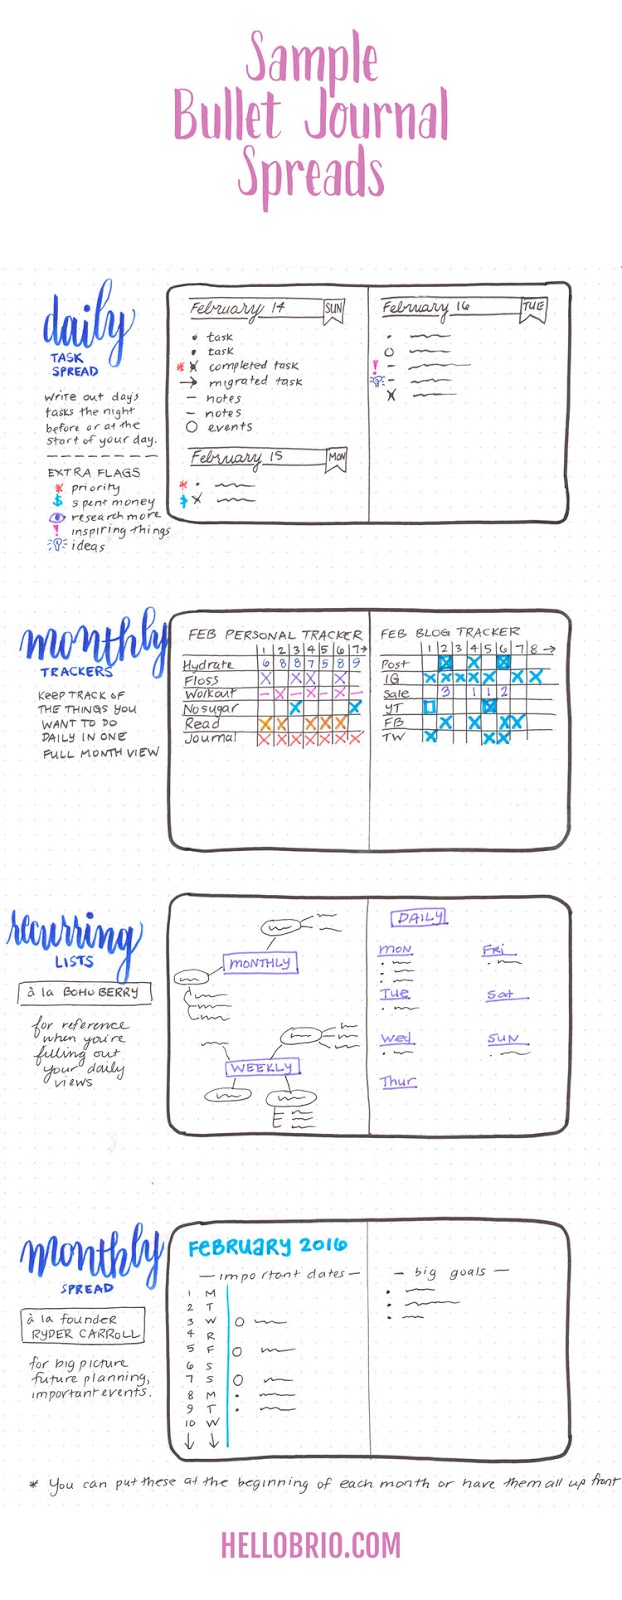 Sample
Bullet Journal
Spreads
daily
TASK
SPREAD
write out day's
tasks the night
before or at the
start of your day.
EXTRA FLAGS
* priority
$ spent money
research more
! inspiring things
ideas
February 14 SUN
• task
• task
* x completed task
→ migrated task
– notes
– notes
O events
February 15 MON
* •
$ x
February 16 TUE
•
O
! –
–
x
monthly
TRACKERS
KEEP TRACK OF
THE THINGS YOU
WANT TO DO
DAILY IN ONE
FULL MONTH VIEW
FEB PERSONAL TRACKER
1 2 3 4 5 6 7→
Hydrate 6 8 8 7 5 8 9
Floss X X X X
Workout – X – X – X –
No sugar X X
Read X X X X X
Journal X X X X X X X
FEB BLOG TRACKER
1 2 3 4 5 6 7 8 →
Post X X X
IG X X X X X X X
Sale 3 1 1 2
YT X
FB X X X X
TW X X X
recurring
LISTS
à la BOHO BERRY
for reference
when you're
filling out
your daily
views
MONTHLY
WEEKLY
DAILY
MON
Tue
Wed
Thur
Fri
Sat
SUN
monthly
SPREAD
à la founder
RYDER CARROLL
for big picture
future planning,
important events.
FEBRUARY 2016
— important dates —
1 M
2 T
3 W O
4 R
5 F O
6 S
7 S O
8 M •
9 T •
10 W
↓ ↓
— big goals —
* You can put these at the beginning of each month or have them all up front
HELLOBRIO.COM